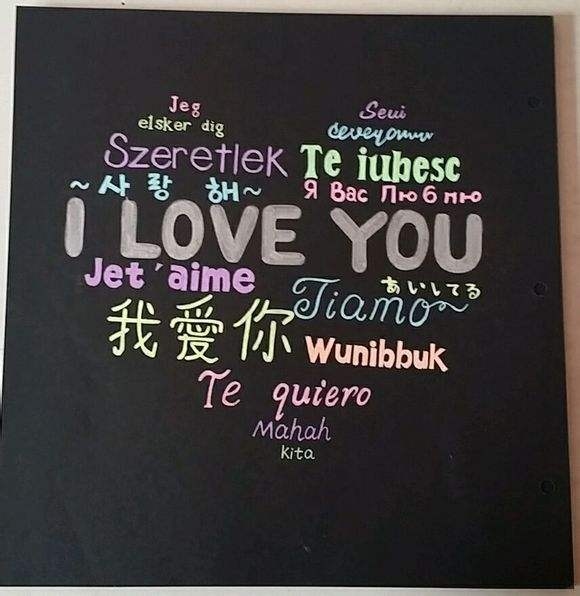 Jeg
elsker dig
Seui
Seveyomuu
Szeretlek
Te iubesc
~사랑 해~
Я Вас Люблю
I LOVE YOU
Jet'aime
あいしてる
Tiamo~
我愛你
Wunibbuk
Te quiero
Mahah
kita